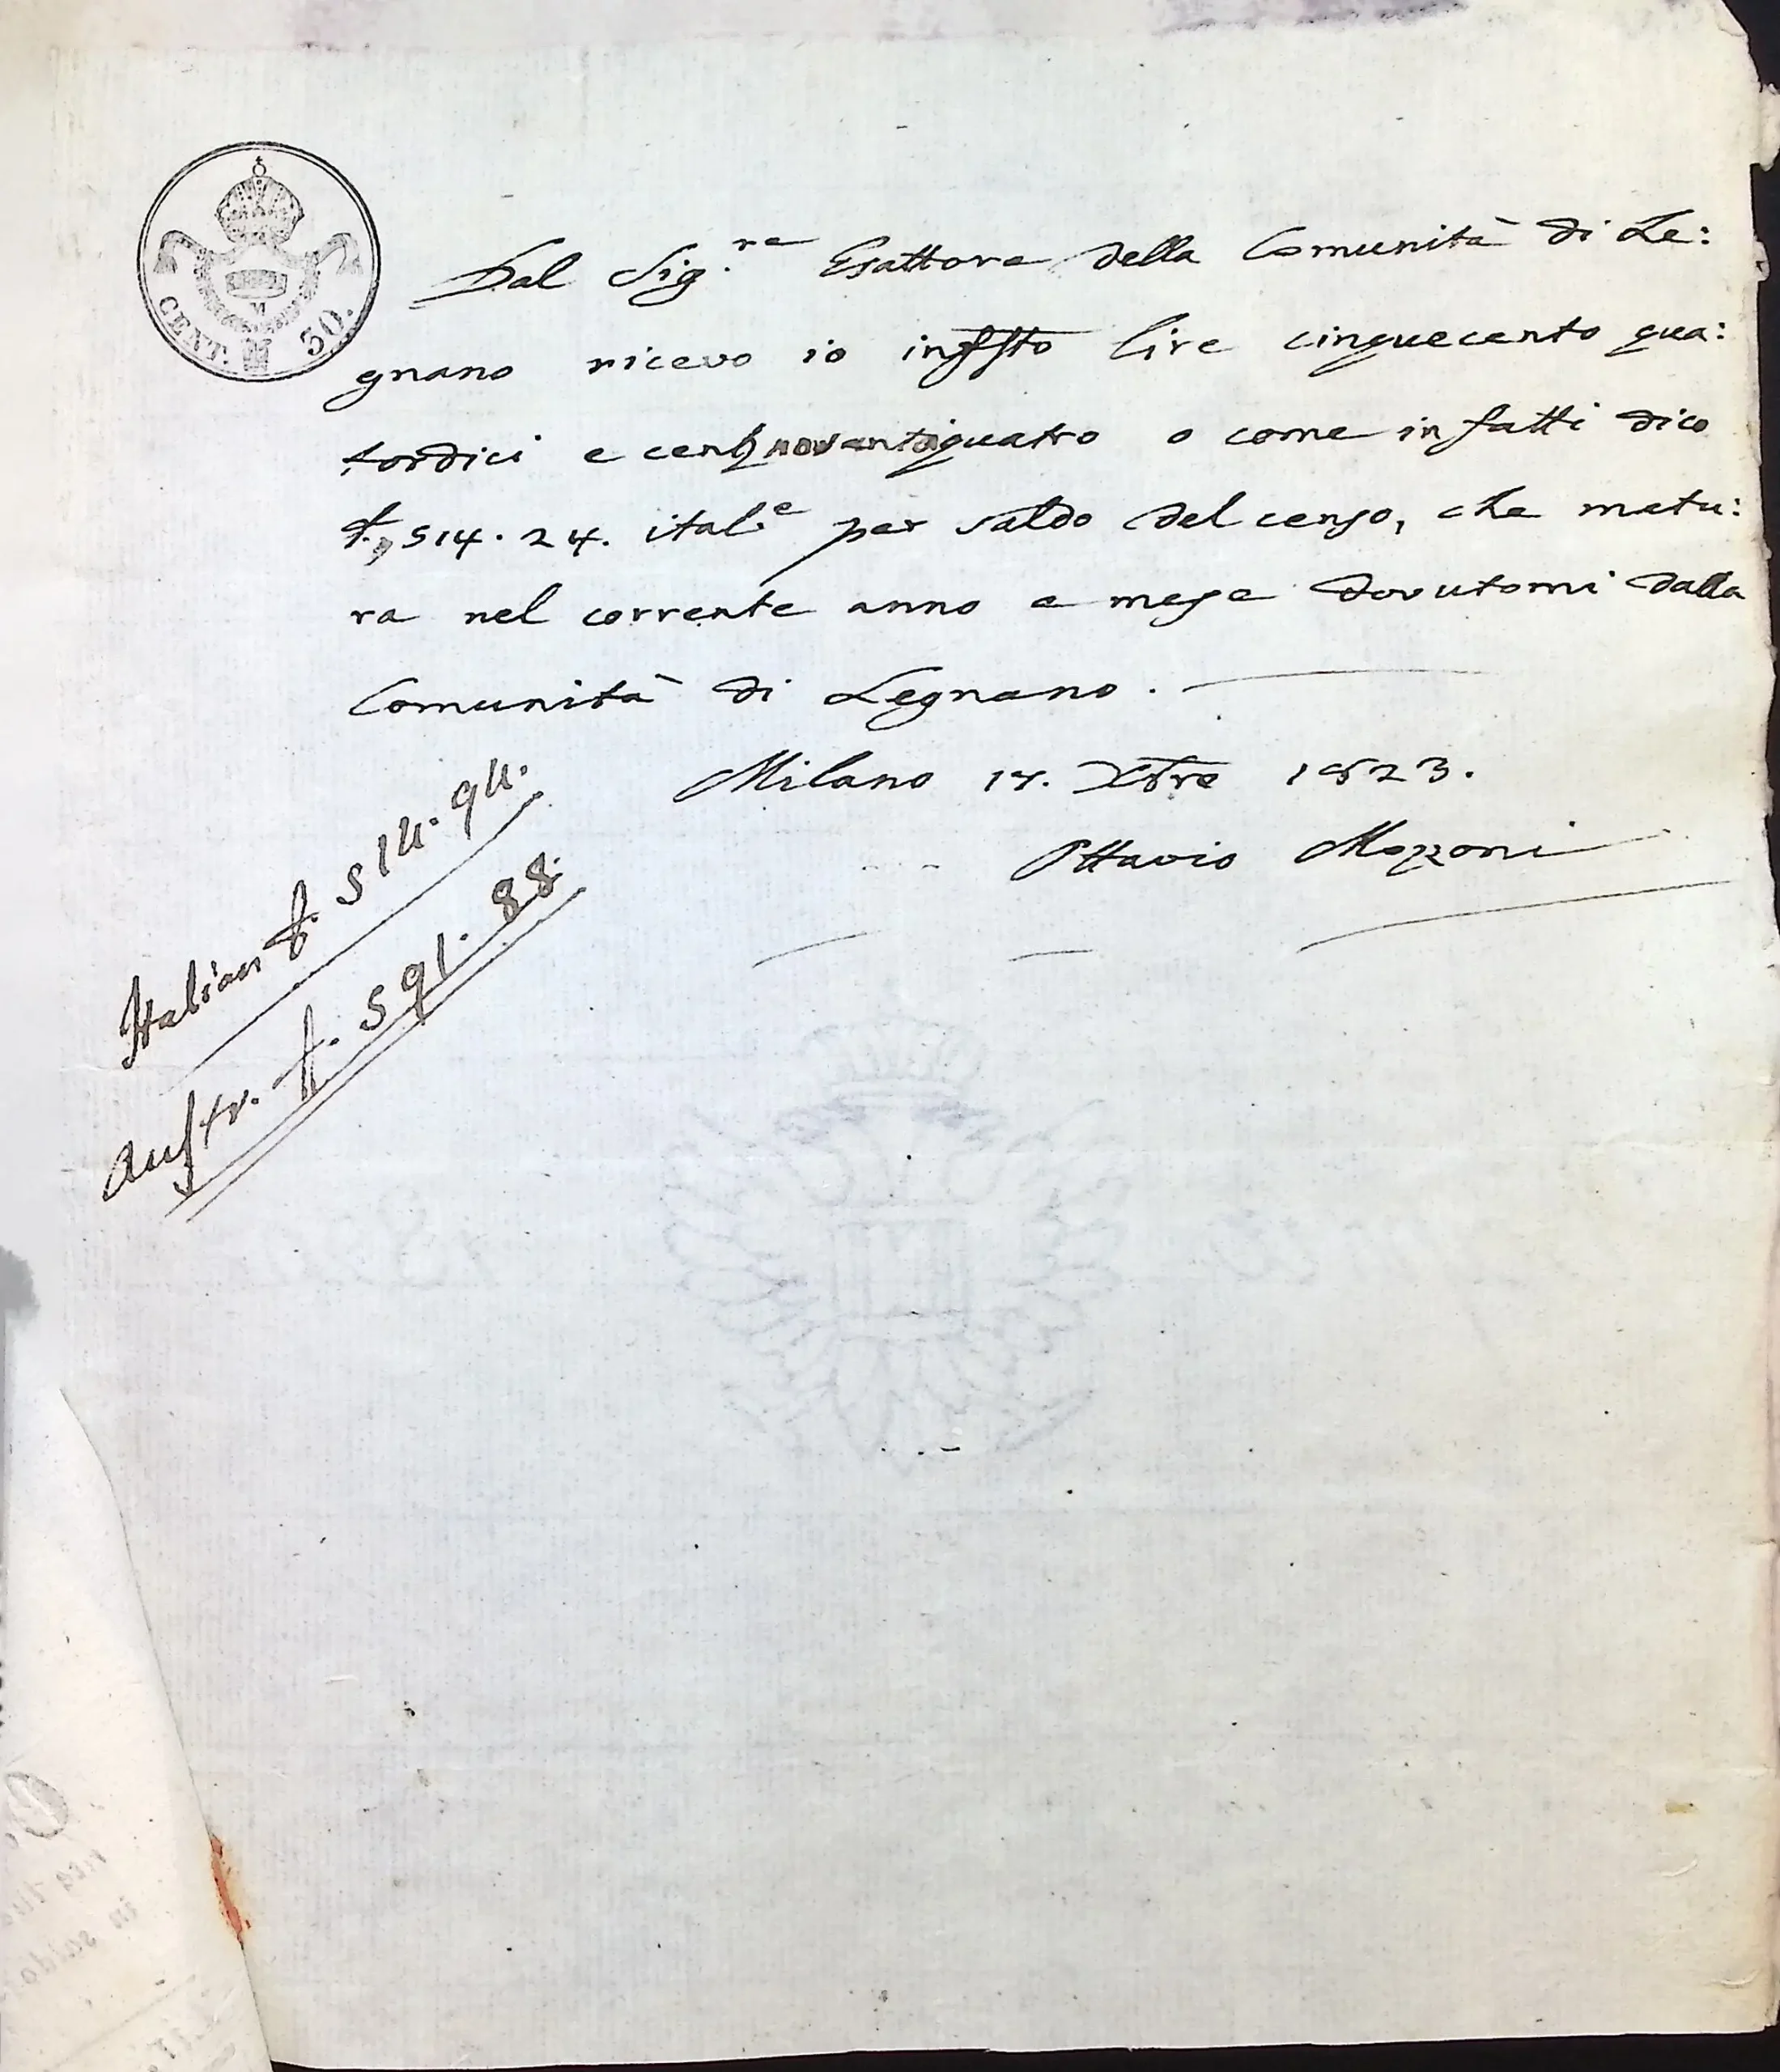 CENT. 30.
Dal Sig.re Esattore della Comunità di Le:
gnano ricevo io infrsto lire cinquecento qua:
tordici e cent novantaquatro o come in fatti dico
£, 514. 24. ital.e per saldo del censo, che matu:
ra nel corrente anno e mese dovutomi dalla
Comunità di Legnano.
Milano 14. Xbre 1823.
Ottavio Mozzoni
Italian £. 514. 94.
Austr. £. 591. 88.